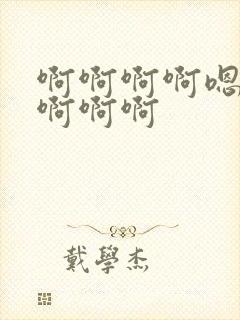 啊啊啊啊嗯
啊啊啊
戴學杰